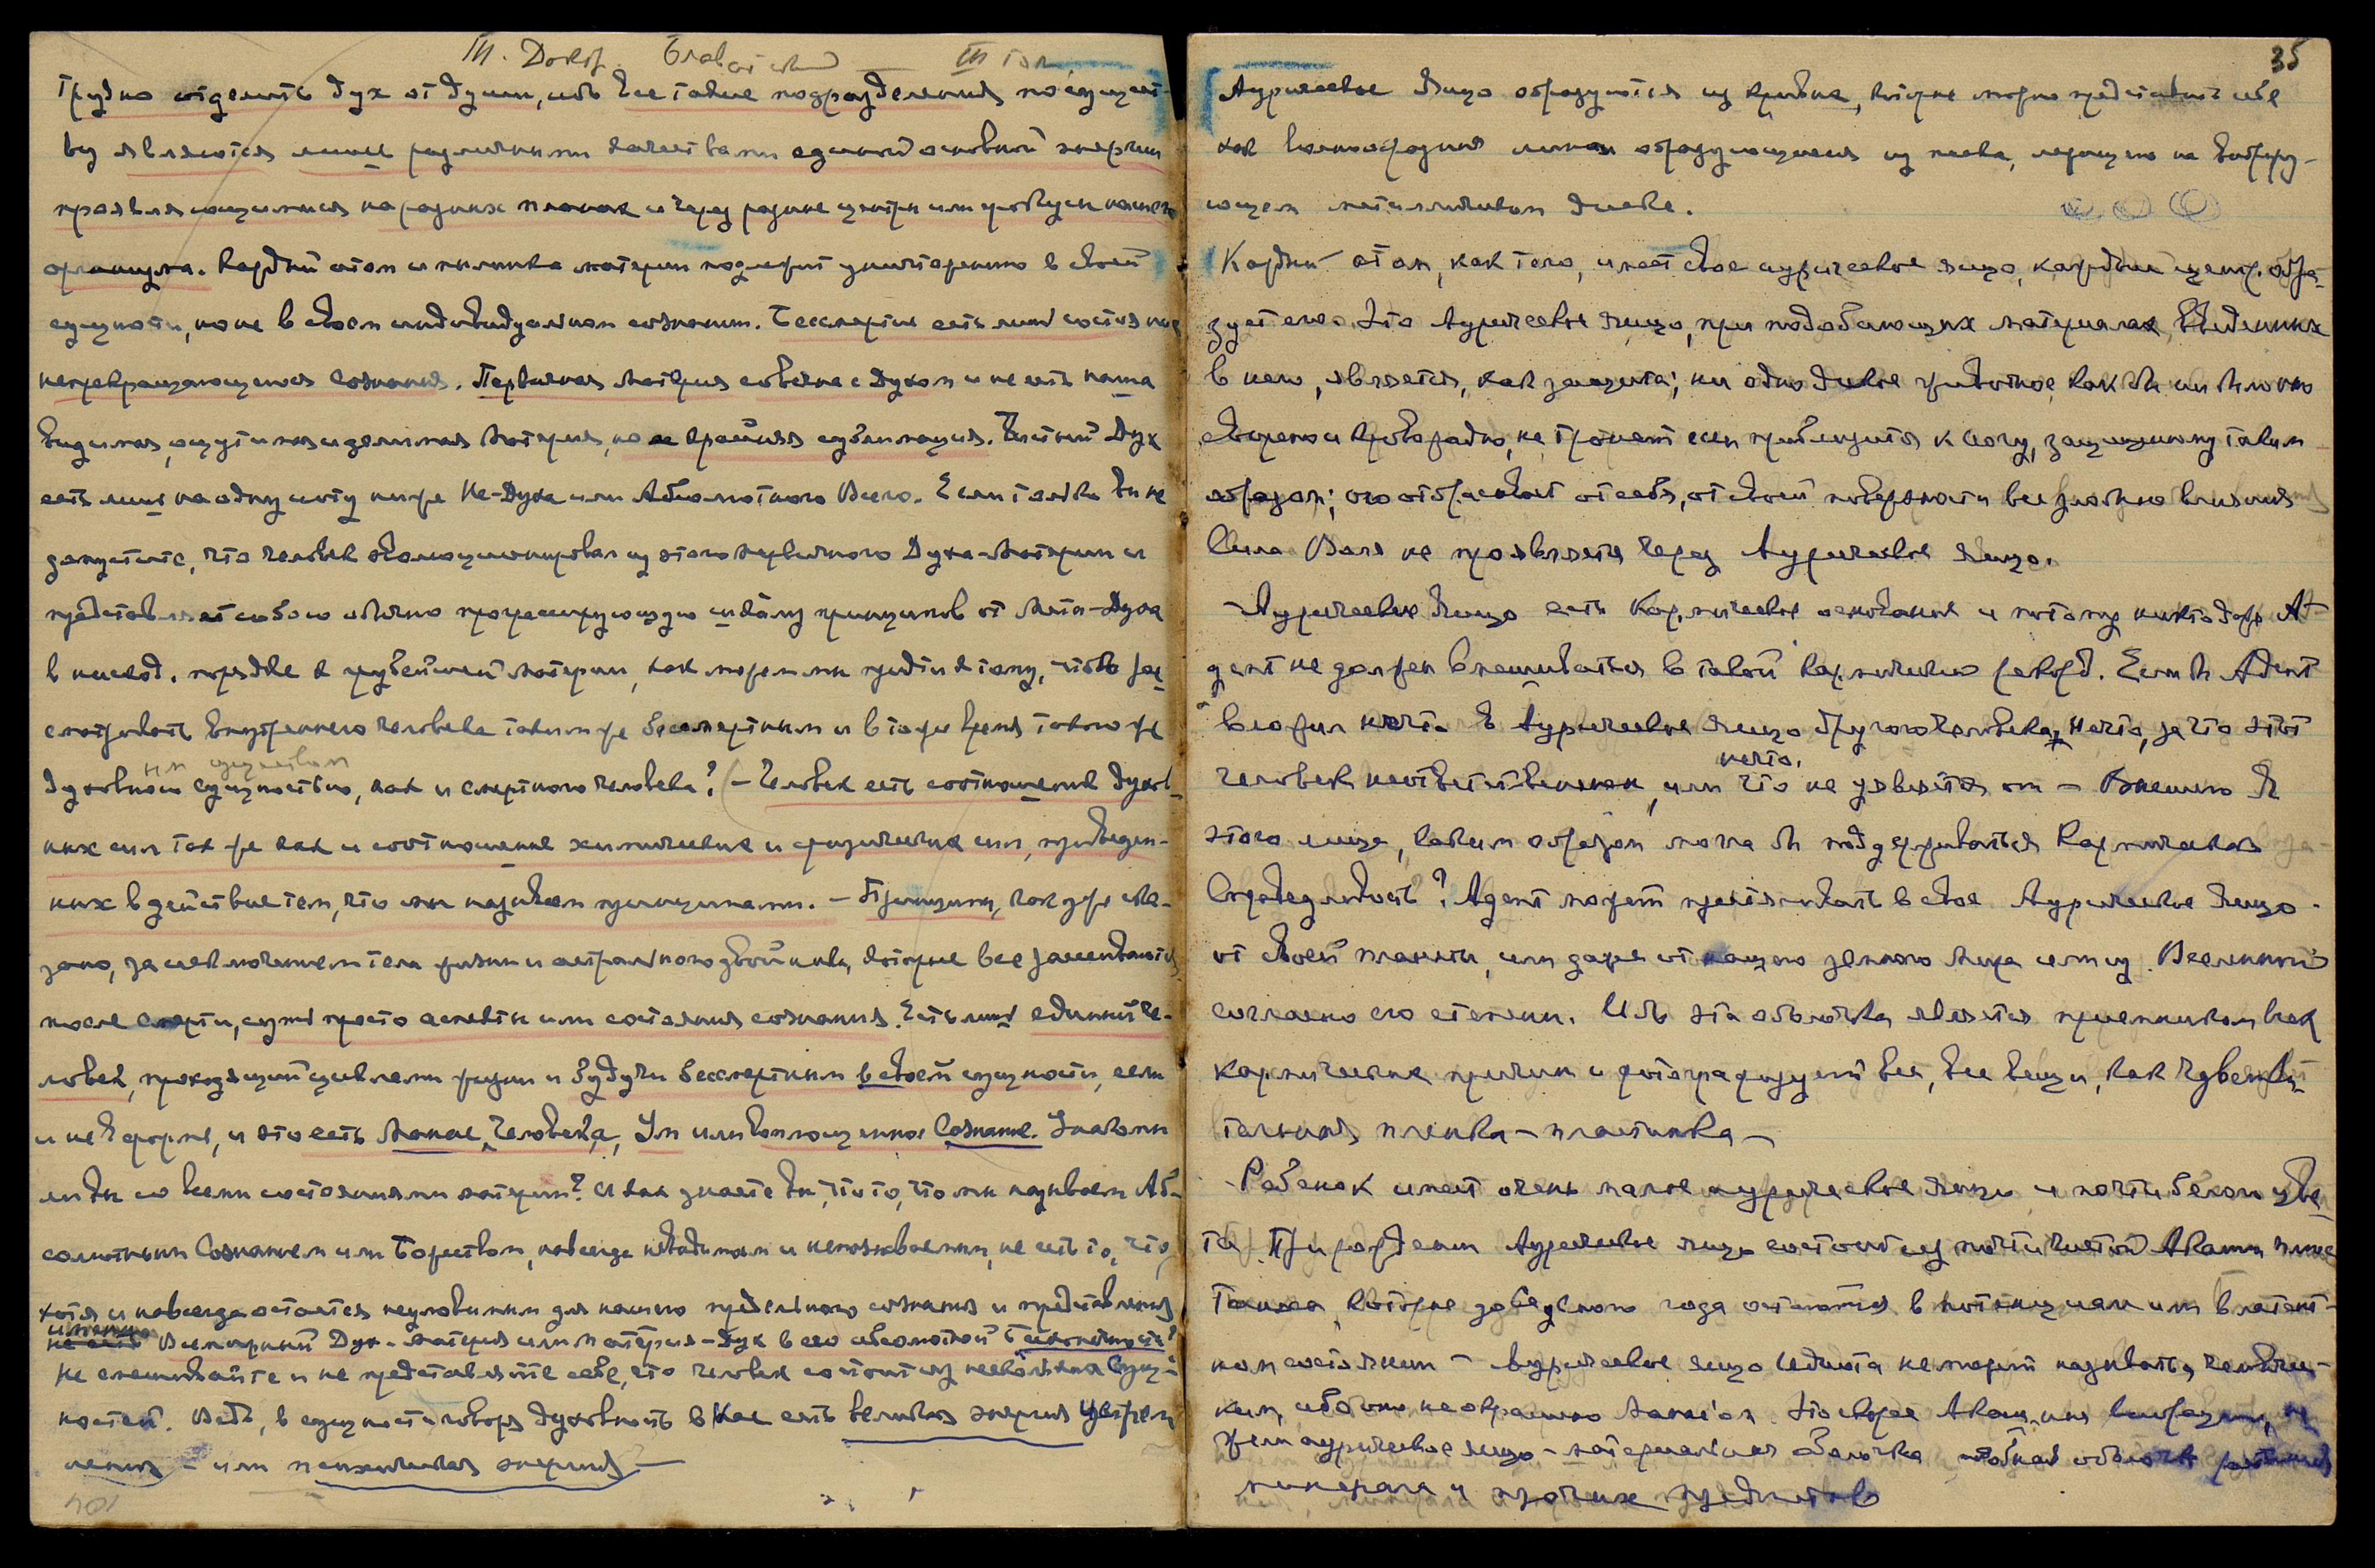 III. Докт. Блават III том
Трудно отделить дух от души, ибо все такие подразделения по существ-
ву являются лишь различными качествами единой основной энергии
проявляющимися на разных планах и через разные центры или фокусы нашего
организма. Каждый атом и пылинка материи подлежит уничтожению в своей
сущности, но не в своем индивидуальном сознании. Бессмертие есть лишь состояние
непрекращающегося Сознания. Первичная Материя совечна с Духом и не есть наша
видимая, ощутимая и делимая Материя, но ее крайняя сублимация. Чистый Дух
есть лишь на одну ноту ниже Не-Духа или Абсолютного Всего. Если только вы не
допустите, что человек эволюционировал из этого первичного Духа-Материи и
представляет собою обычно прогрессирующую шкалу принципов от Мета-Духа
в нисход. порядке к грубейшей материи, как можем мы прийти к тому, чтобы рас-
сматривать внутреннего человека таким же бессмертным и в то же время таким же
духовным сущностью, как и смертного человека? (– Человек есть соотношение Духов-
ных сил так же как и соотношение химических и физических сил, приведен-
ных в действие тем, что мы называем принципами. – Принципы, как уже ска-
зано, за исключением тела, жизни и астрального двойника, которые все рассеиваются
после смерти, суть просто аспекты или состояния сознания. Есть лишь единый че-
ловек, проходящий циклами жизни и будучи бессмертным в своей сущности, если
и не в форме, и это есть Манас, Человека, Ум или воплощенное Сознание. Знакомы
ли вы со всеми состояниями материи? И как знаете вы, что то, что мы называем Аб-
солютным Сознанием или Божеством, навсегда невидимым и непознаваемым, не есть то, что,
хотя и навсегда остается неуловимым для нашего предельного сознания и представления
именно
не есть Всемирный Дух-материя или Материя-Дух в его абсолютной Бесконечности?
Не смешивайте и не представляйте себе, что человек состоит из нескольких сущ-
ностей. Ведь, в сущности говоря духовность в нас есть великая энергия Устрем
ления – или психическая энергия –
104
35
Аурическое Яицо образуется из кривых, которые можно представить себе
как волнообразные линии образующиеся из песка, лежащего на вибриру-
ющем металлическом диске.
Каждый атом, как тело, имеет свое аурическое яицо, каждый центр. обра-
зует его. Это Аурическое Яицо, при подобающих материалах, введенных
в него, является, как защита; ни одно дикое животное, как бы ни было оно
свирепо и кровожадно, не тронет и не приблизится к йогу, защищенному таким
образом; оно отбрасывает от себя, от своей поверхности все злобные влияния
Сила Воли не проявляется через Аурическое Яицо.
– Аурическое Яицо есть Кармическое основание и потому никто даже А-
депт не должен вмешиваться в такой Кармический рекорд. Если бы Адепт
вложил нечто в Аурическое Яицо другого человека, нечто, за что этот
нечто,
человек неответственен, или что не является от – Внешнего Я
этого лица, каким образом могла бы поддерживаться Кармическая
Справедливость? Адепт может притягивать в свое Аурическое Яицо –
от своей планеты, или даже от нашего земного мира или из Вселенной
согласно его степени. Ибо эта оболочка является приемником всех
Кармических причин и фотографирует все, все вещи, как чувстви-
тельная пленка – пластинка –
– Ребенок имеет очень малое аурическое Яицо и почти белого цве-
та. При рождении Аурическое яицо состоит из почти чистой Акаши плюс
Танха, которые до седьмого года остаются в потенциале или в латент-
ном состоянии – Аурическое яицо идиота не может называться человече-
ским, ибо оно не окрашено Манасом. Это скорее Акашные вибрации, не-
жели аурическое яицо – материальная оболочка, подобная оболочке растения
минерала и прочих предметов